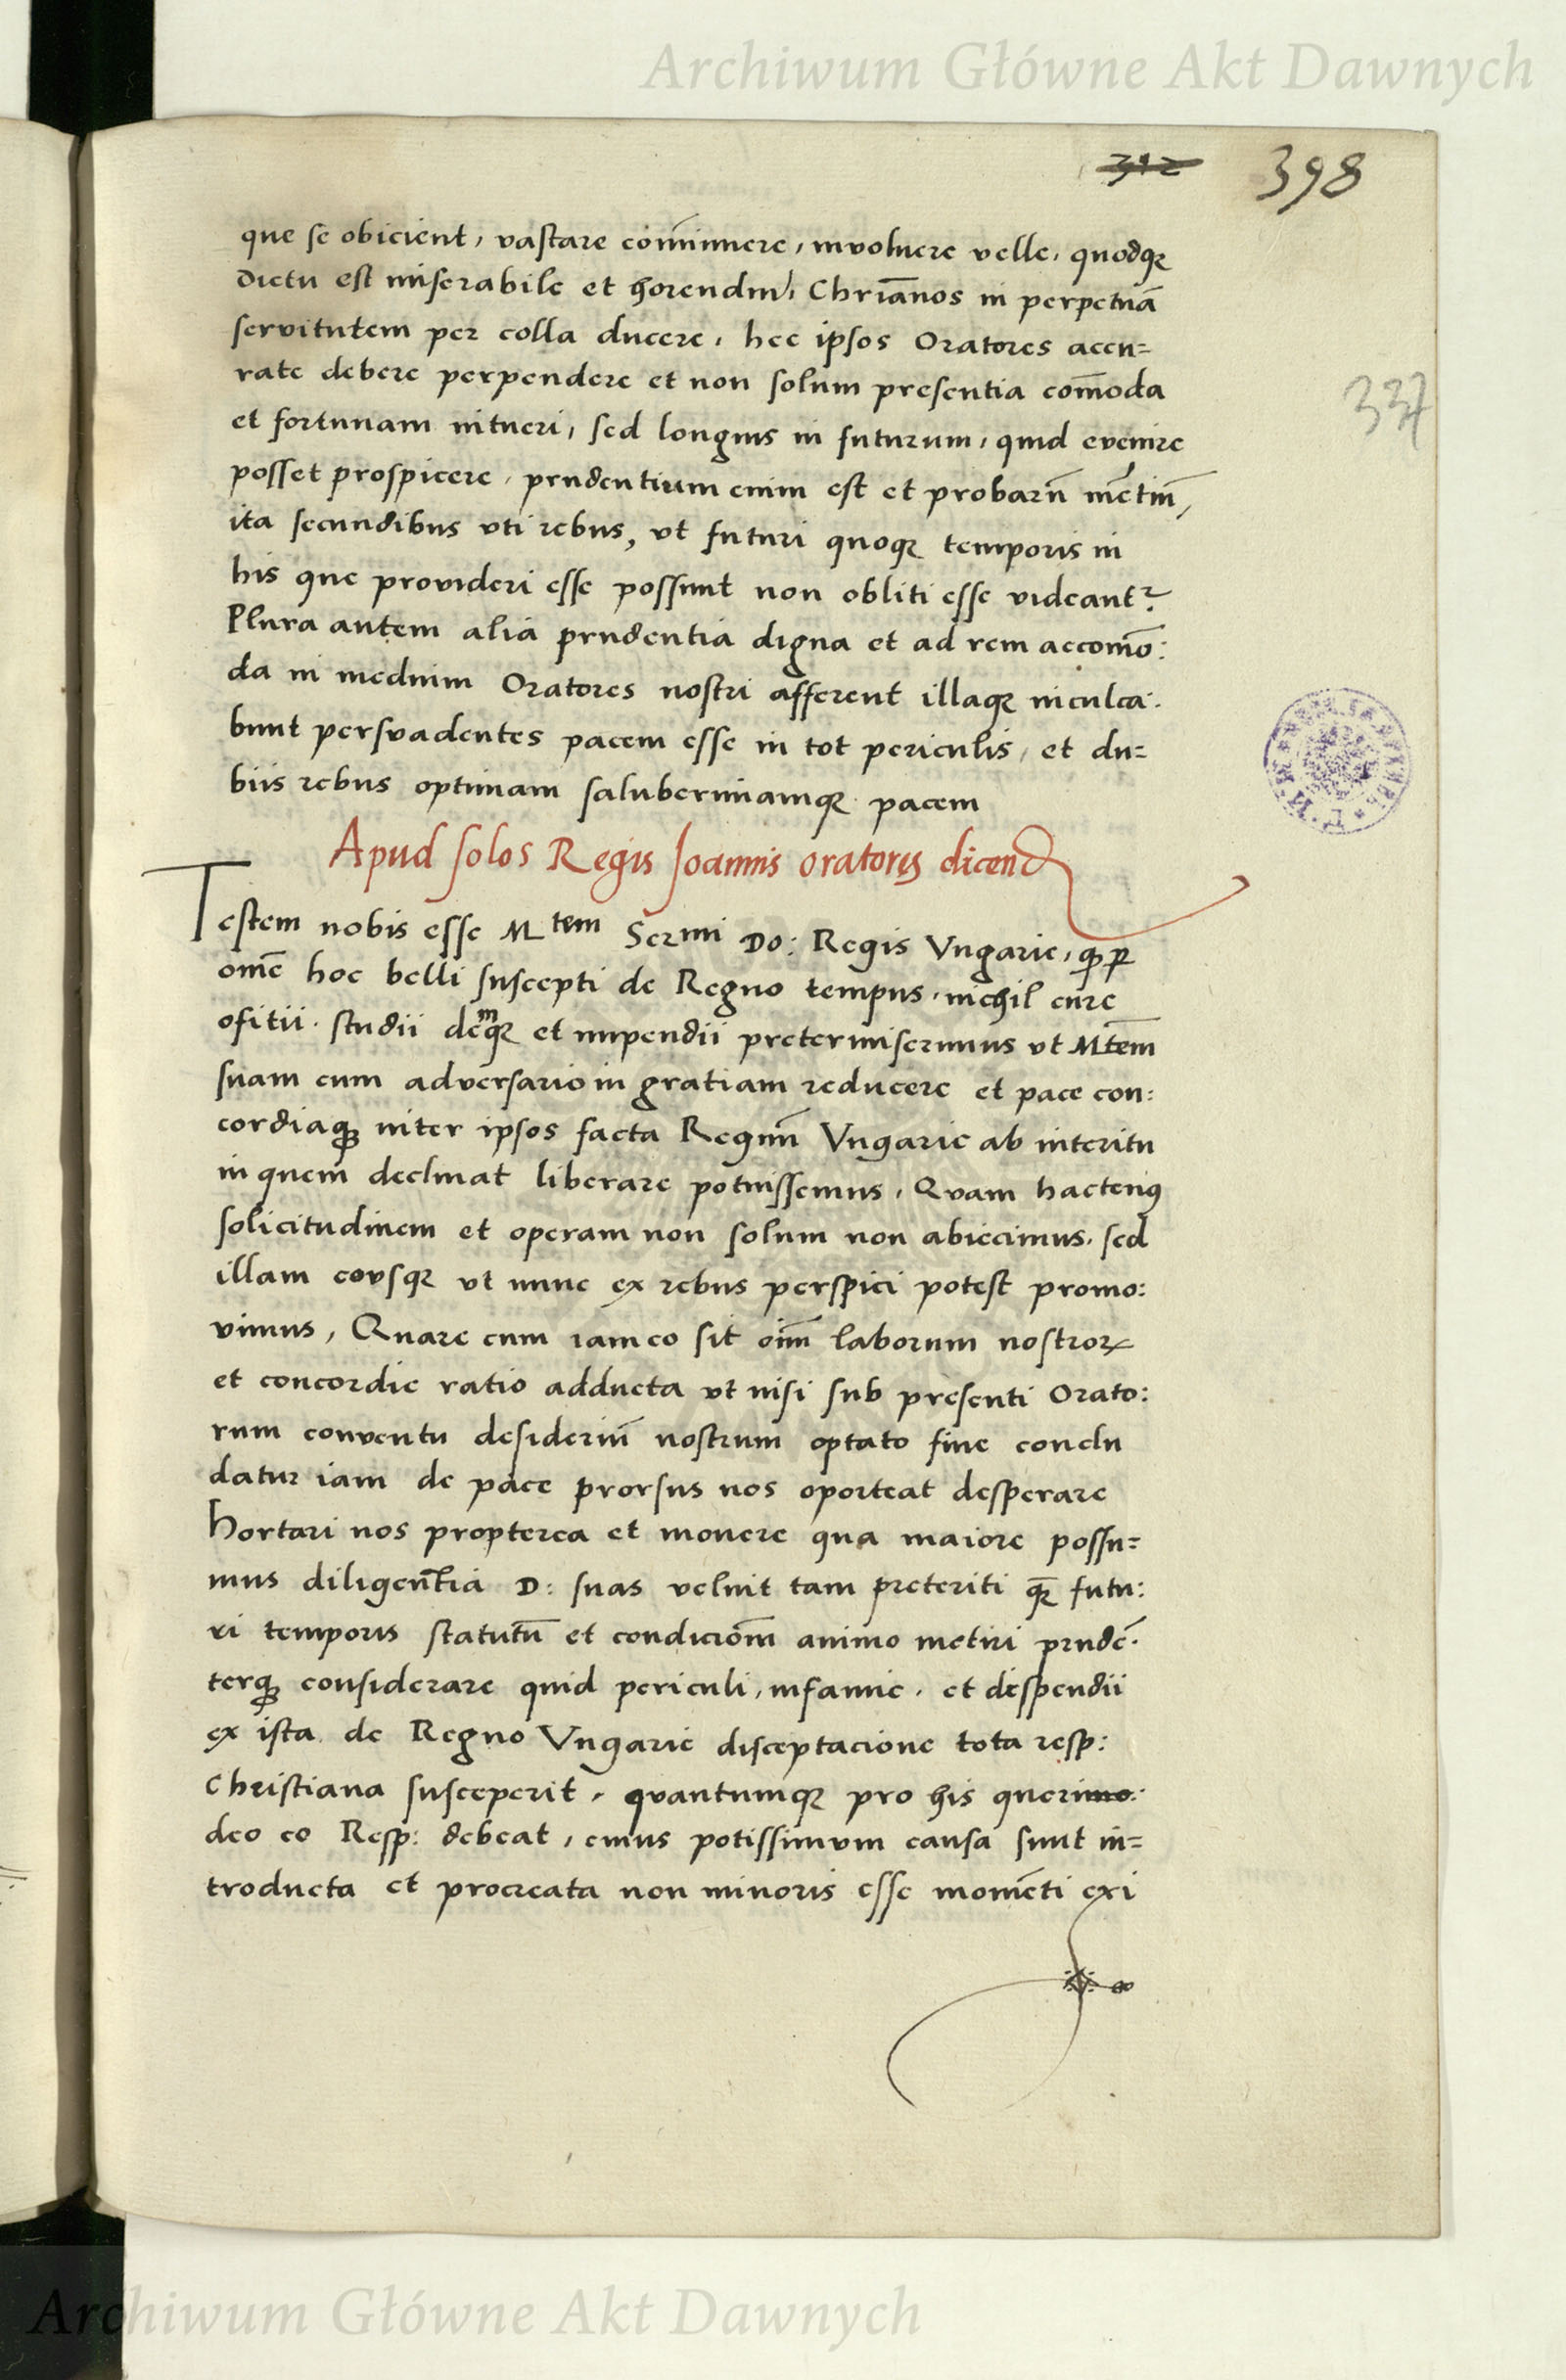 Archiwum Główne Akt Dawnych
312 398
que se obicient, vastare com̄inuere, involuere velle, quodqꝫ
dictu est miserabile et horendu̅, Chri̅anos in perpetuā
servitutem per colla ducere, hec ipsos Oratores accu=
rate debere perpendere et non solum presentia com̄oda
337
et fortunam intueri, sed longius in futurum, quid evenire
posset prospicere, prudentium enim est et probarn̄ mētiu̅,
ita secundibus uti rebus, ut futuri quoqꝫ temporis in
his que provideri esse possunt non obliti esse videantr̉
Plura autem alia prudentia digna et ad rem accom̄o:
da in medium Oratores nostri afferent illaqꝫ inculca:
bunt persvadentes pacem esse in tot periculis, et du=
biis rebus optimam saluberimamqꝫ pacem
Apud solos Regis Joannis oratores dicend
Testem nobis esse Mtem Sermi Do: Regis Vngarie, qp̄ ꝑ
omē hoc belli suscepti de Regno tempus, nichil cure
ofitii. studii demqꝫ et impendii pretermiserimus ut Mtēm
suam cum adversario in gratiam reducere et pace con:
cordiaqꝫ inter ipsos facta Regnu̅ Vngarie ab interitu
in quem declinat liberare potuissemus, Quam hactenꝰ
solicitudinem et operam non solum non abiecimus, sed
illam eousqꝫ ut nunc ex rebus perspici potest promo:
vimus, Quare cum iam eo sit oīm laborum nostroꝝ
et concordie ratio adducta ut nisi sub presenti Orato:
rum conventu desideriu̅ nostrum optato fine conclu
datur iam de pace prorsus nos oporteat desperare
Hortari nos propterea et monere qua maiore possu=
mus diligen̄tia D: suas velint tam preteriti q̄ꝫ futu:
ri temporis statutu̅ et condiciōm animo metiri prudē:
terqꝫ considerare quid periculi, infamie, et dispendii
ex ista de Regno Vngarie disceptacione tota resp:
Christiana susceperit, quantumqꝫ pro his querimo:
deo eo Resp: debeat, cuius potissimum causa sunt in=
troducta et procreata non minoris esse momēti exi
Archiwum Główne Akt Dawnych